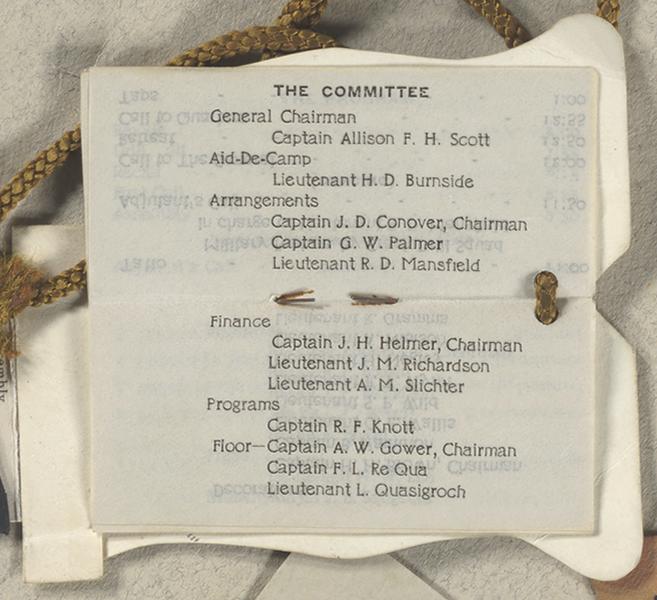 THE COMMITTEE
General Chairman
Captain Allison F. H. Scott
Aid-De-Camp
Lieutenant H. D. Burnside
Arrangements
Captain J. D. Conover, Chairman
Captain G. W. Palmer
Lieutenant R. D. Mansfield
Finance
Captain J. H. Helmer, Chairman
Lieutenant J. M. Richardson
Lieutenant A. M. Slichter
Programs
Captain R. F. Knott
Floor—Captain A. W. Gower, Chairman
Captain F. L. Re Qua
Lieutenant L. Quasigroch